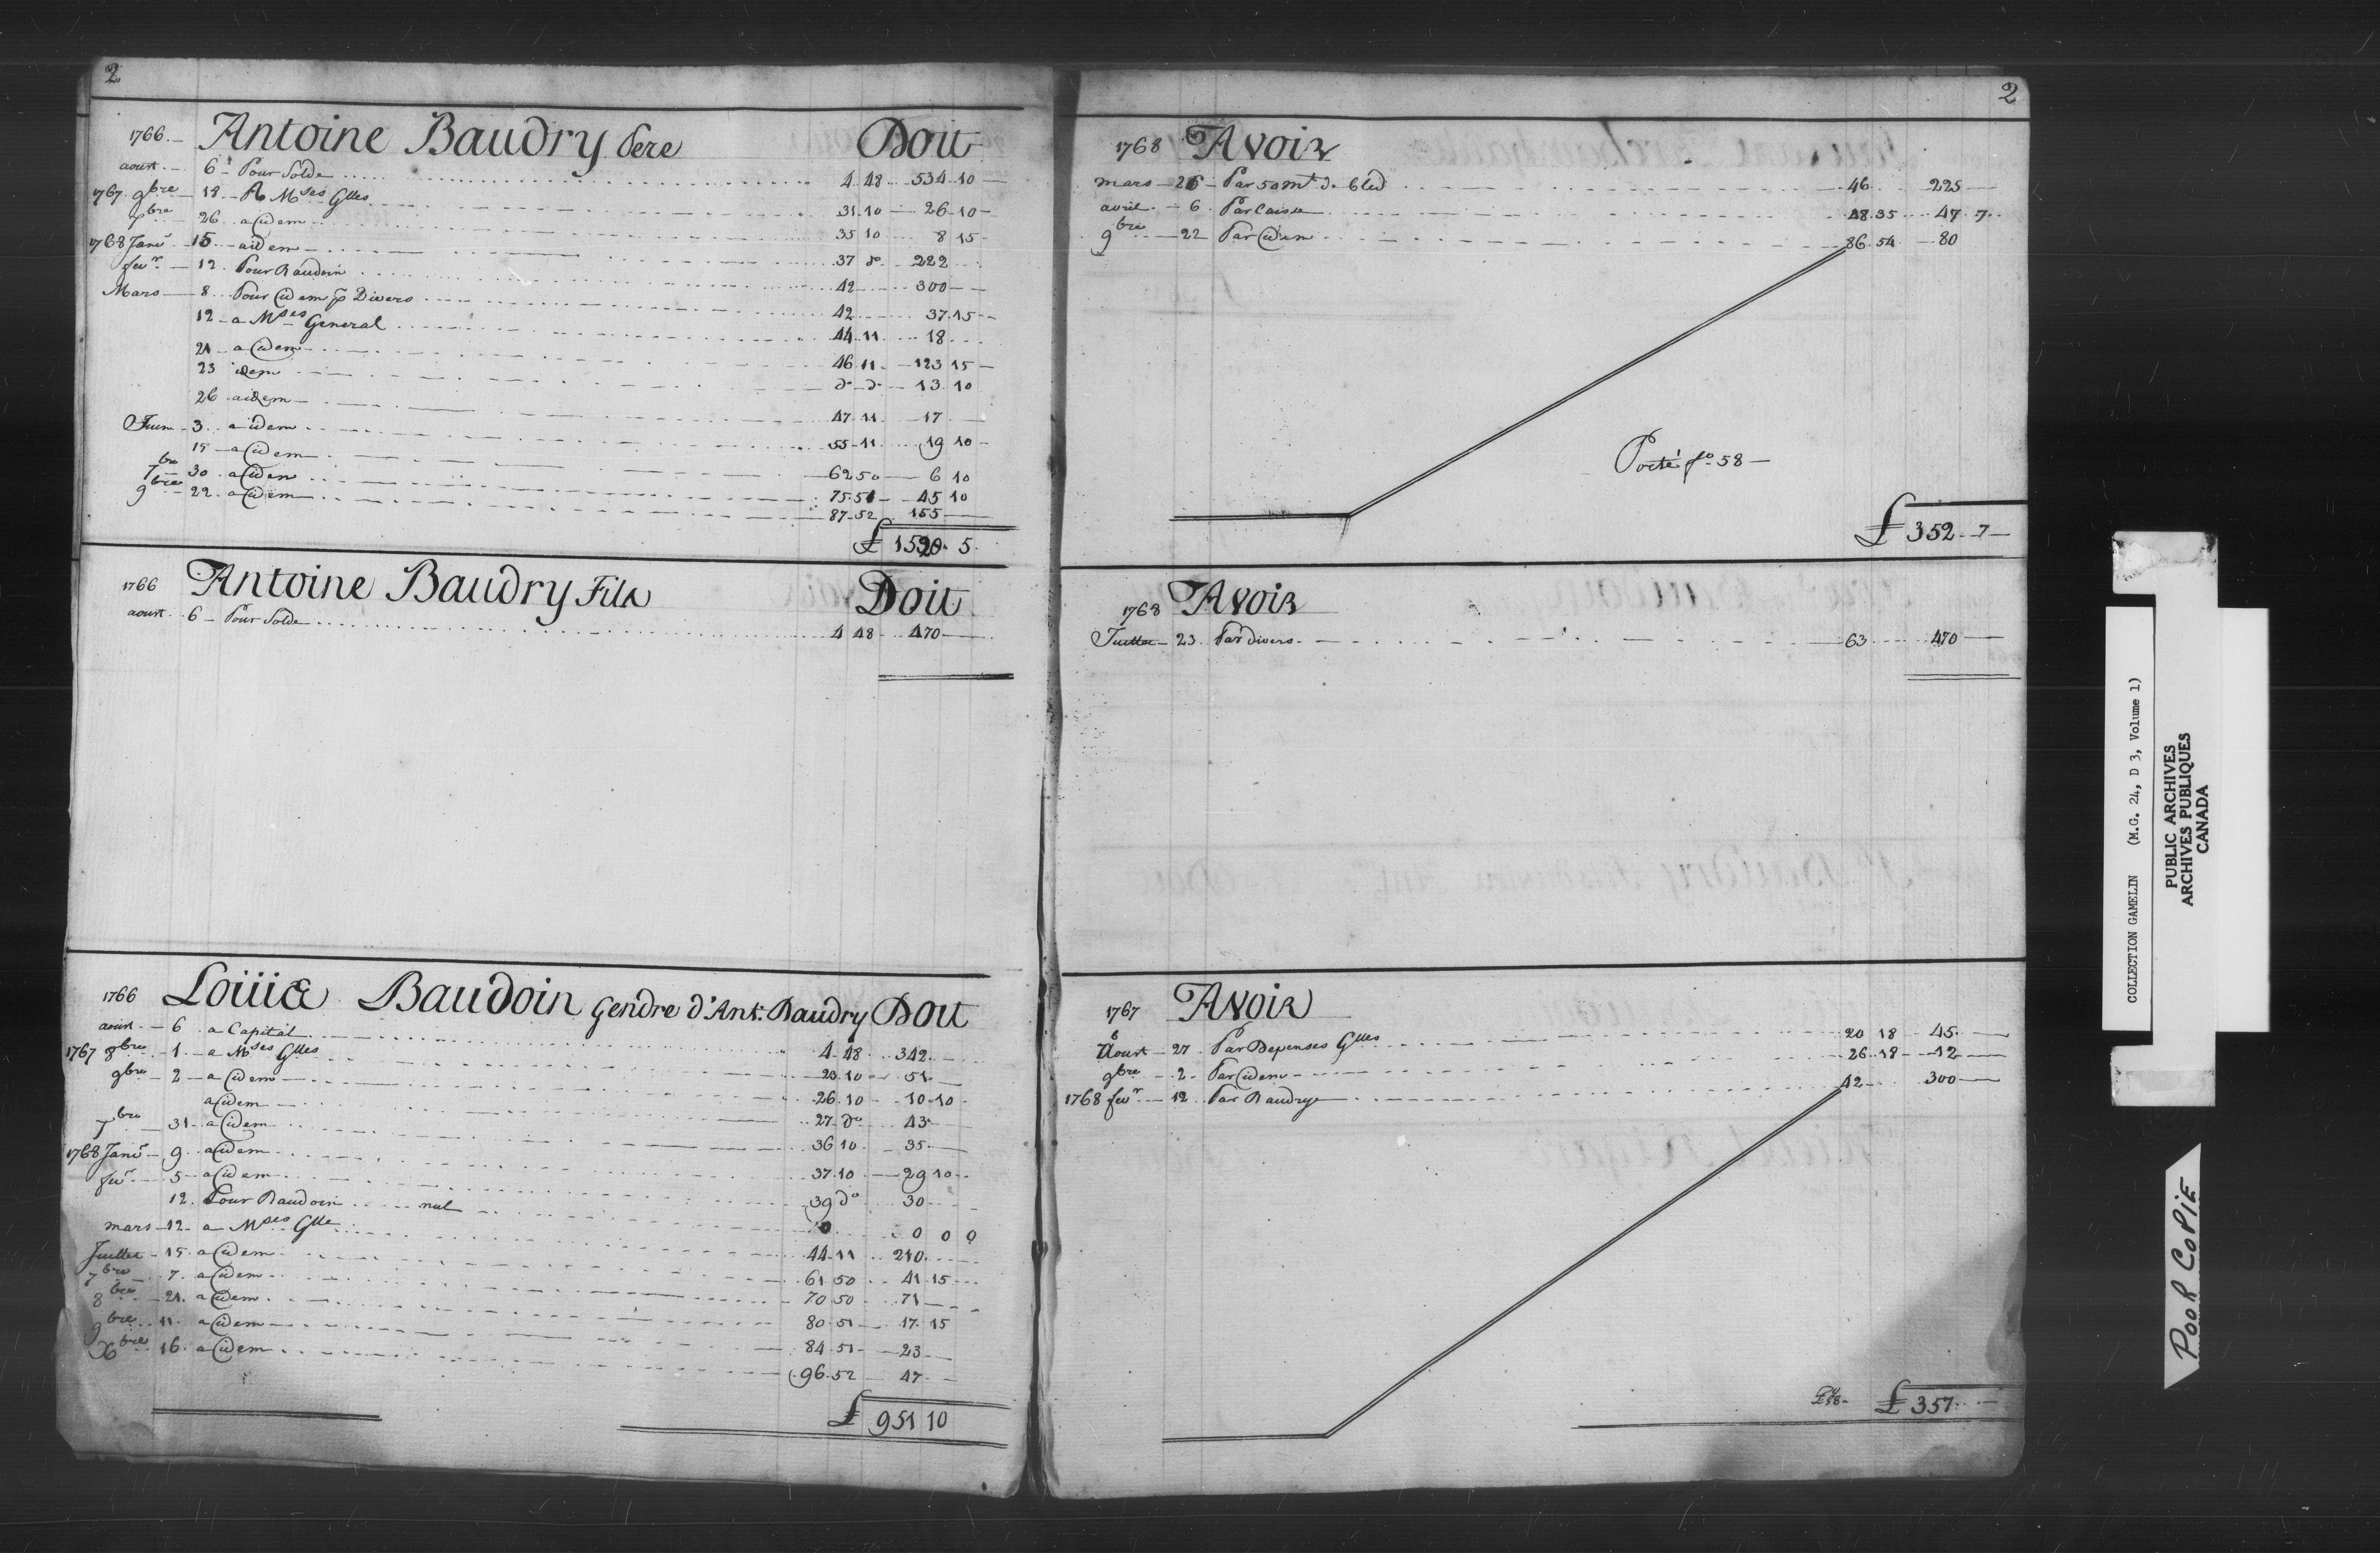 2
1766 Antoine Baudry Pere Doit
aoust 6 Pour Solde 4 48 534 10
1767 9bre 18 A Mses Glles 31 10 26 10
7bre 26 a idem 35 10 8 15
1768 Janr 15 a idem 37 do 222
fevr 12 Pour Baudoin 42 300
Mars 8 Pour idem p Divers 42 37 15
12 a Mses General 44 11 18
21 a idem 46 11 123 15
23 idem do do 13 10
26 a idem 47 11 17
Juin 3 a idem 55 11 19 10
15 a idem 62 50 6 10
7bre 30 a idem 75 51 45 10
9bre 22 a idem 87 52 155
£ 1520 5
1766 Antoine Baudry Fils Doit
aoust 6 Pour Solde 4 48 470
1766 Louis Baudoin Gendre d'Ant: Baudry Doit
aoust 6 a Capital 4 48 342
1767 8bre 1 a Mses Glles 20 10 51
9bre 2 a idem 26 10 10 10
a idem 27 do 43
7bre 31 a idem 36 10 35
1768 Janr 9 a idem 37 10 29 10
fevr 5 a idem 39 do 30
12 Pour Baudoin nul 0 0 0 0
mars 12 a Mses Glle 44 11 210
Juillet 15 a idem 61 50 41 15
7bre 7 a idem 70 50 71
8bre 21 a idem 80 51 17 15
9bre 11 a idem 84 51 23
Xbre 16 a idem 96 52 47
£ 951 10
2
1768 Avoir
mars 26 Par 50 mt de bled 46 225
avril 6 Par Caisse 48 35 47 7
9bre 22 Par idem 86 54 80
Porté fo 58
£ 352 7
1768 Avoir
Juillet 23 Par divers 63 470
1767 Avoir
Aoust 27 Par Depenses Glles 20 18 45
9bre 2 Par idem 26 18 12
1768 fevr 12 Par Baudry 42 300
£ 357
COLLECTION GAMELIN (M.G. 24, D 3, Volume 1)
PUBLIC ARCHIVES
ARCHIVES PUBLIQUES
CANADA
POOR COPIE